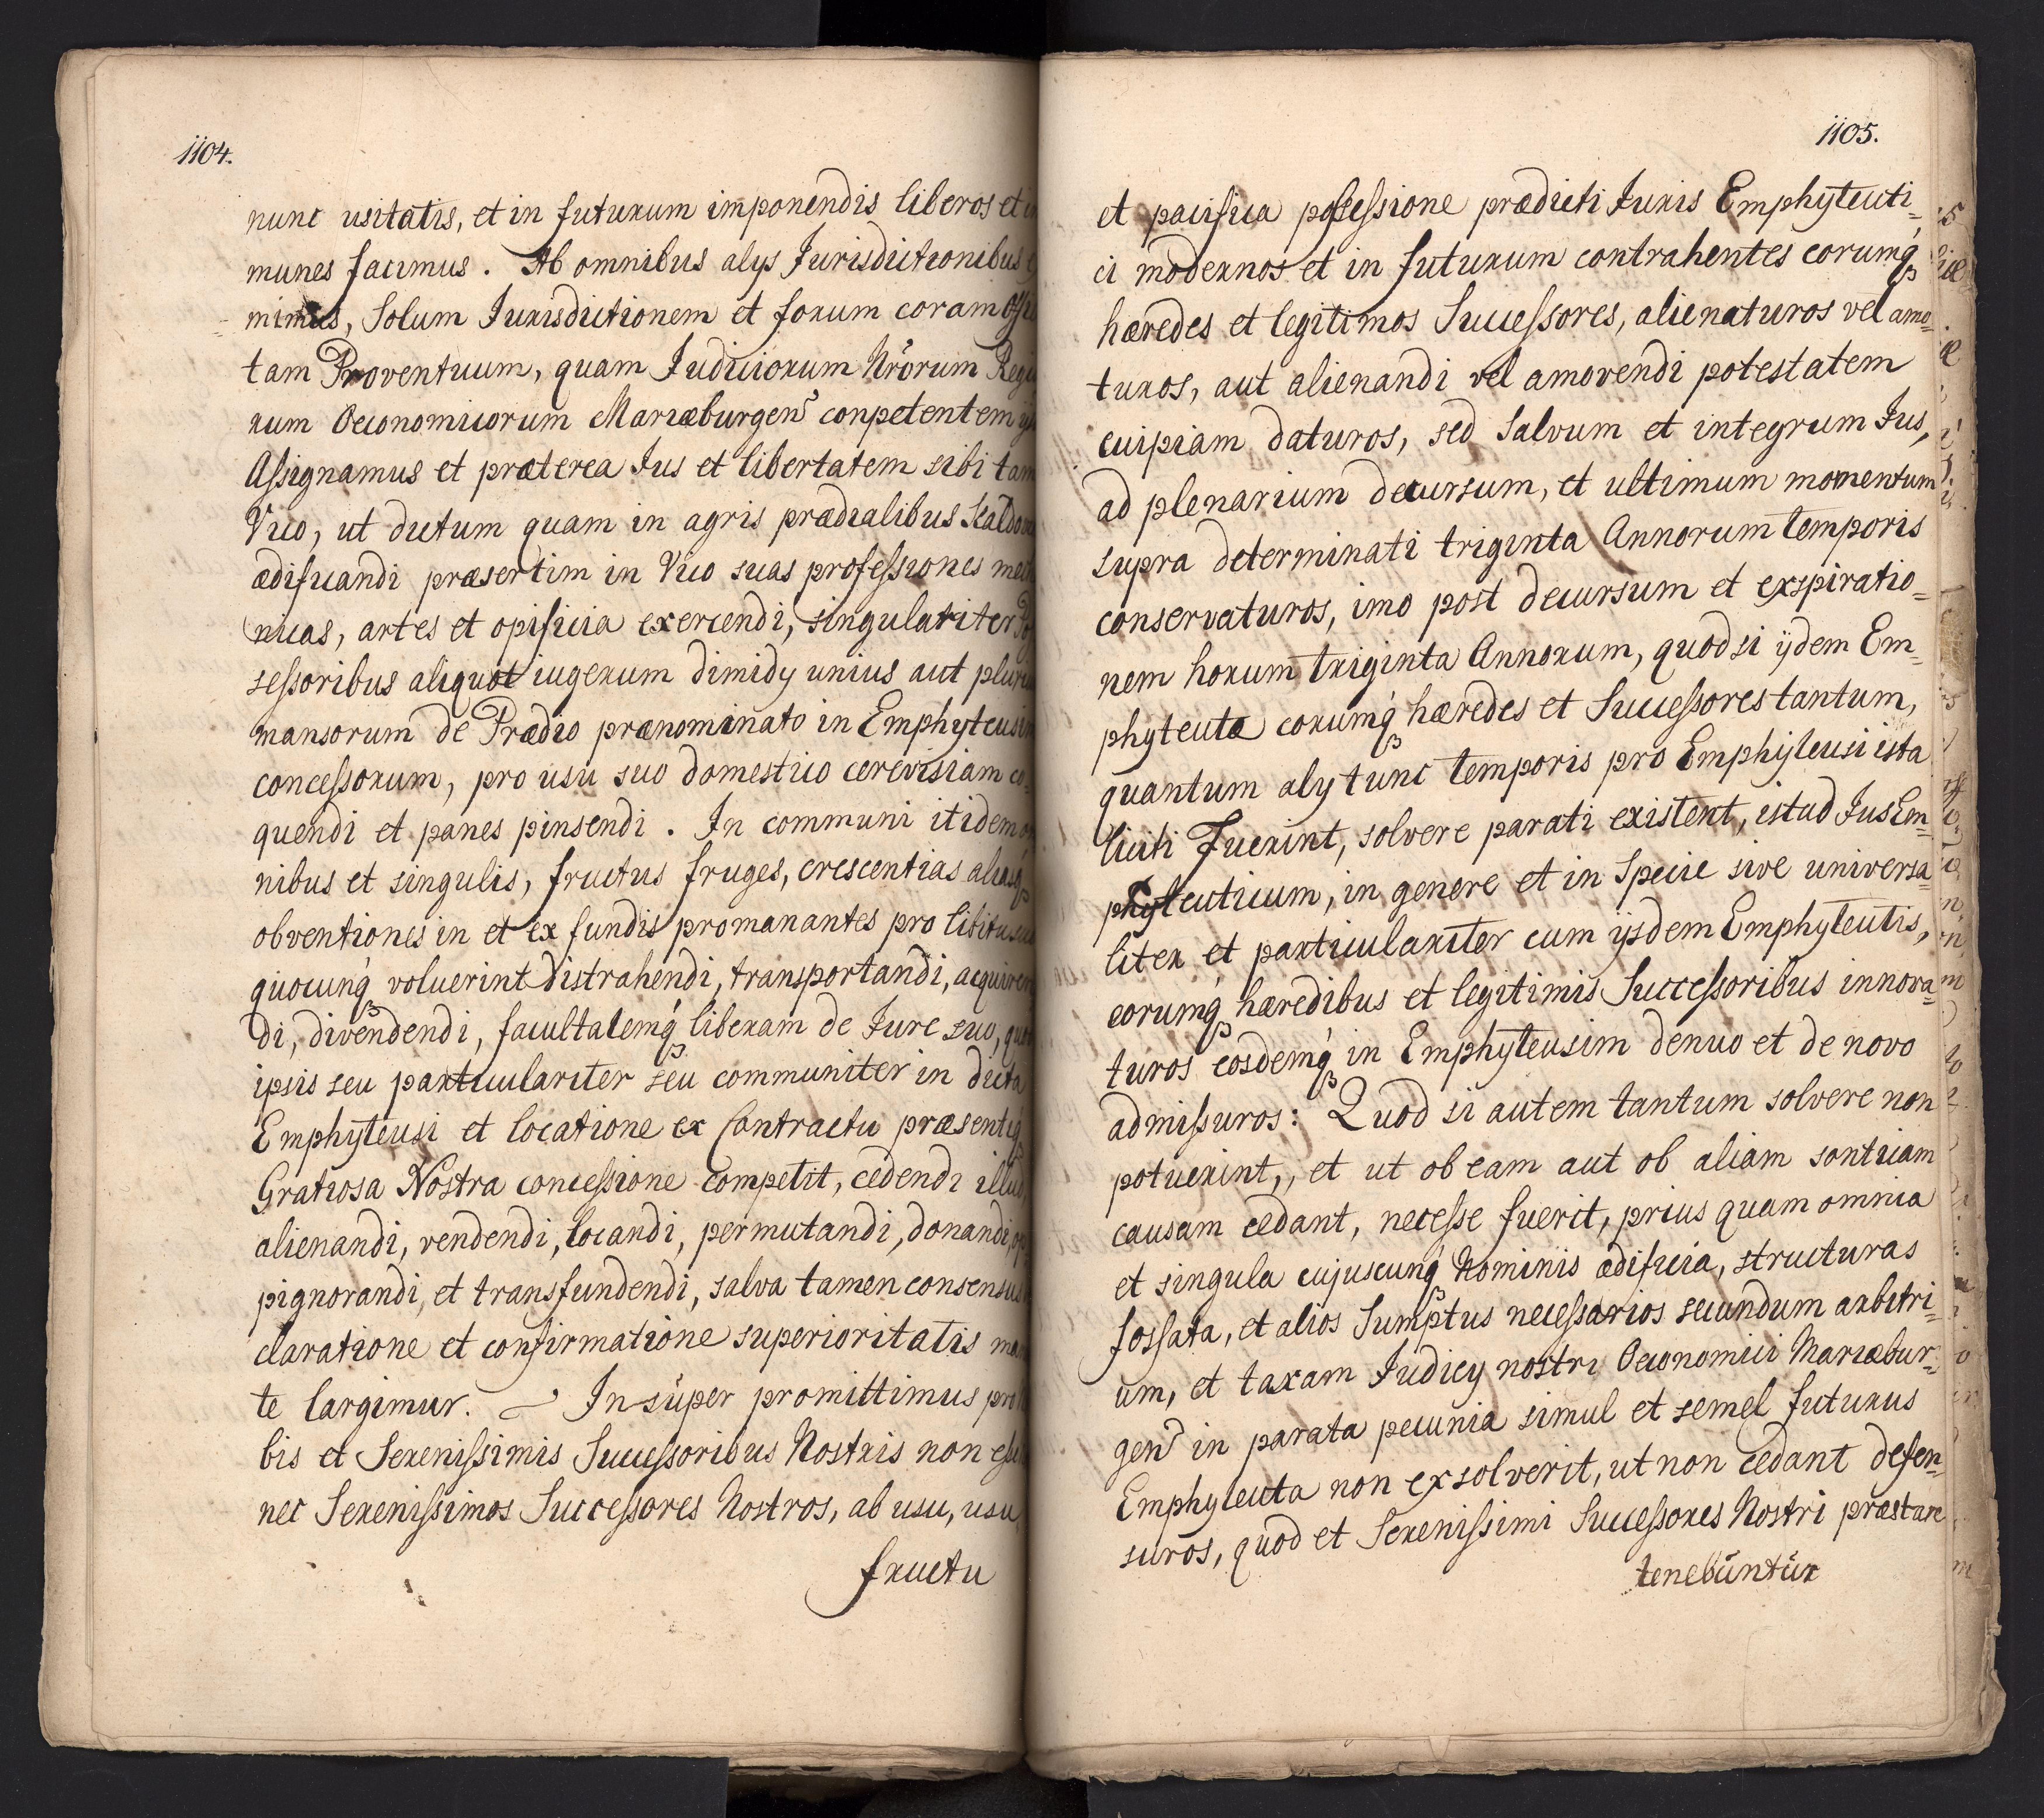 1104.
nunc usitatis, et in futurum imponendis liberos et
munes facimus. Ab omnibus alys Jurisdictionibus
mimus, Solum Jurisdictionem et forum coram
tam Proventuum, quam Judiciorum Nrorum
rum Oeconomicorum Mariæburgens conpetentem
Assignamus et præterea Jus et libertatem sibi tam
Vico, ut dictum quam in agris prædialibus
ædificandi præsertim in Vico suas professiones
nicas, artes et opificia exercendi, singulariter
sessoribus aliquot iugerum dimidy unius aut
mansorum de Prædio prænominato in Emphyteusin
concessorum, pro usu suo domestico cerevisiam co-
quendi et panes pinsendi. In communi itidem
nibus et singulis, fructus fruges, crescentias aliasq
obventiones in et ex fundis promanantes pro libitu
quocunq voluerint distrahendi, transportandi,
di, divendendi, facultatemq liberam de Jure suo,
ipsis seu particulariter seu communiter in dicta
Emphyteusi et locatione ex Contractu præsentiq
Gratiosa Nostra concessione competit, cedendi illud,
alienandi, vendendi, locandi, permutandi, donandi,
pignorandi, et transfundendi, salva tamen consensus
claratione et confirmatione superioritatis
te largimur. In super promittimus pro
bis et Serenissimis Successoribus Nostris non
nec Serenissimos Successores Nostros, ab usu, usu
fructu
1105.
et pacifica possessione prædicti Juris Emphyteuti-
ci modernos et in futurum contrahentes eorumq
hæredes et legitimos Successores, alienaturos vel amo-
turos, aut alienandi vel amovendi potestatem
cuipiam daturos, sed salvum et integrum Jus,
ad plenarium decursum, et ultimum momentum
supra determinati triginta Annorum temporis
conservaturos, imo post decursum et exspiratio-
nem horum triginta Annorum, quodsi ijdem Em-
phyteutæ eorumq hæredes et Successores tantum,
quantum aly tunc temporis pro Emphyteusi ista
liciti Fuerint, solvere parati existent, istud Jus Em-
phyteuticum, in genere et in Specie sive universa-
liter et particulariter cum ijsdem Emphyteutis,
eorumq hæredibus et legitimis Successoribus innova-
turos eosdemq in Emphyteusim denuo et de novo
admissuros: Quod si autem tantum solvere non
potuerint, et ut ob eam aut ob aliam sonticam
causam cedant, necesse fuerit, prius quam omnia
et singula cujuscunq Nominis ædificia, structuras
fossata, et alios Sumptus necessarios secundum arbitri-
um, et taxam Judicy nostri Oeconomici Mariæbur-
gens in parata pecunia simul et semel futurus
Emphyteuta non exsolverit, ut non cedant defen-
suros, quod et Serenissimi Successores Nostri præstare
tenebuntur